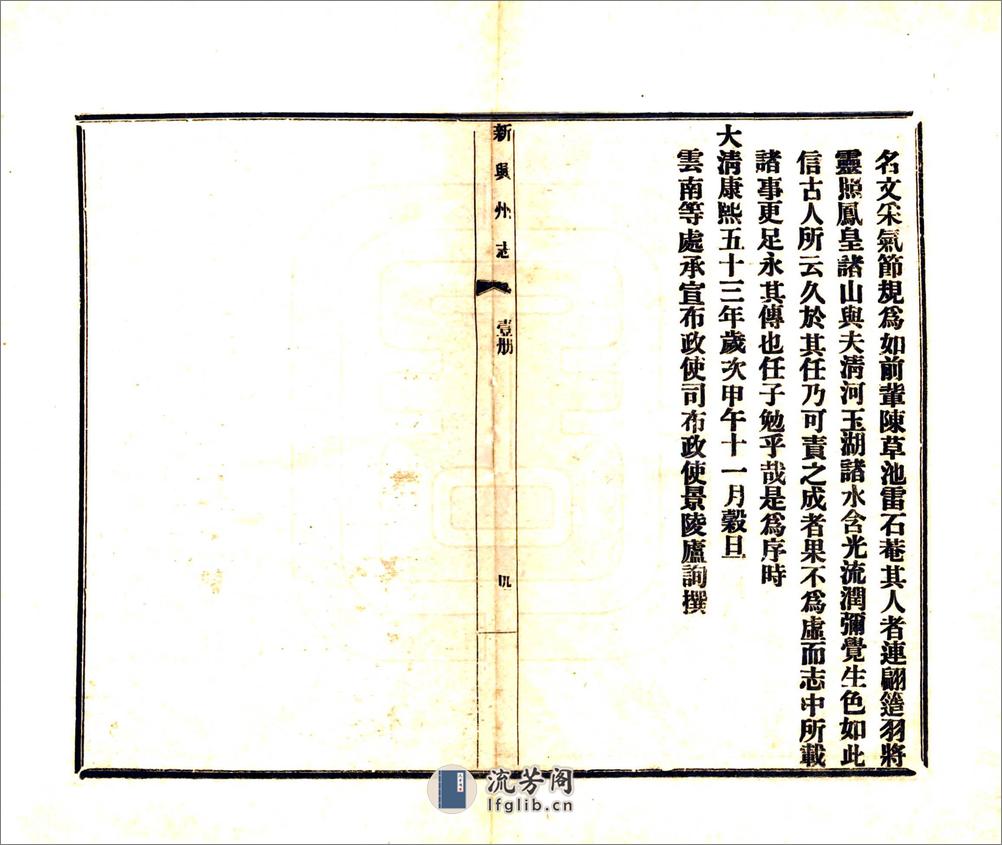 名文采氣節規爲如前輩陳草池雷石菴其人者連翩簉羽將
靈照鳳皇諸山與夫淸河玉湖諸水含光流潤彌覺生色如此
信古人所云久於其任乃可責之成者果不爲虛而志中所載
諸事更足永其傳也任子勉乎哉是爲序時
大淸康熙五十三年歲次甲午十一月穀旦
雲南等處承宣布政使司布政使景陵廬詢撰
新興州志 壹册 四
流芳阁
lfglib.cn